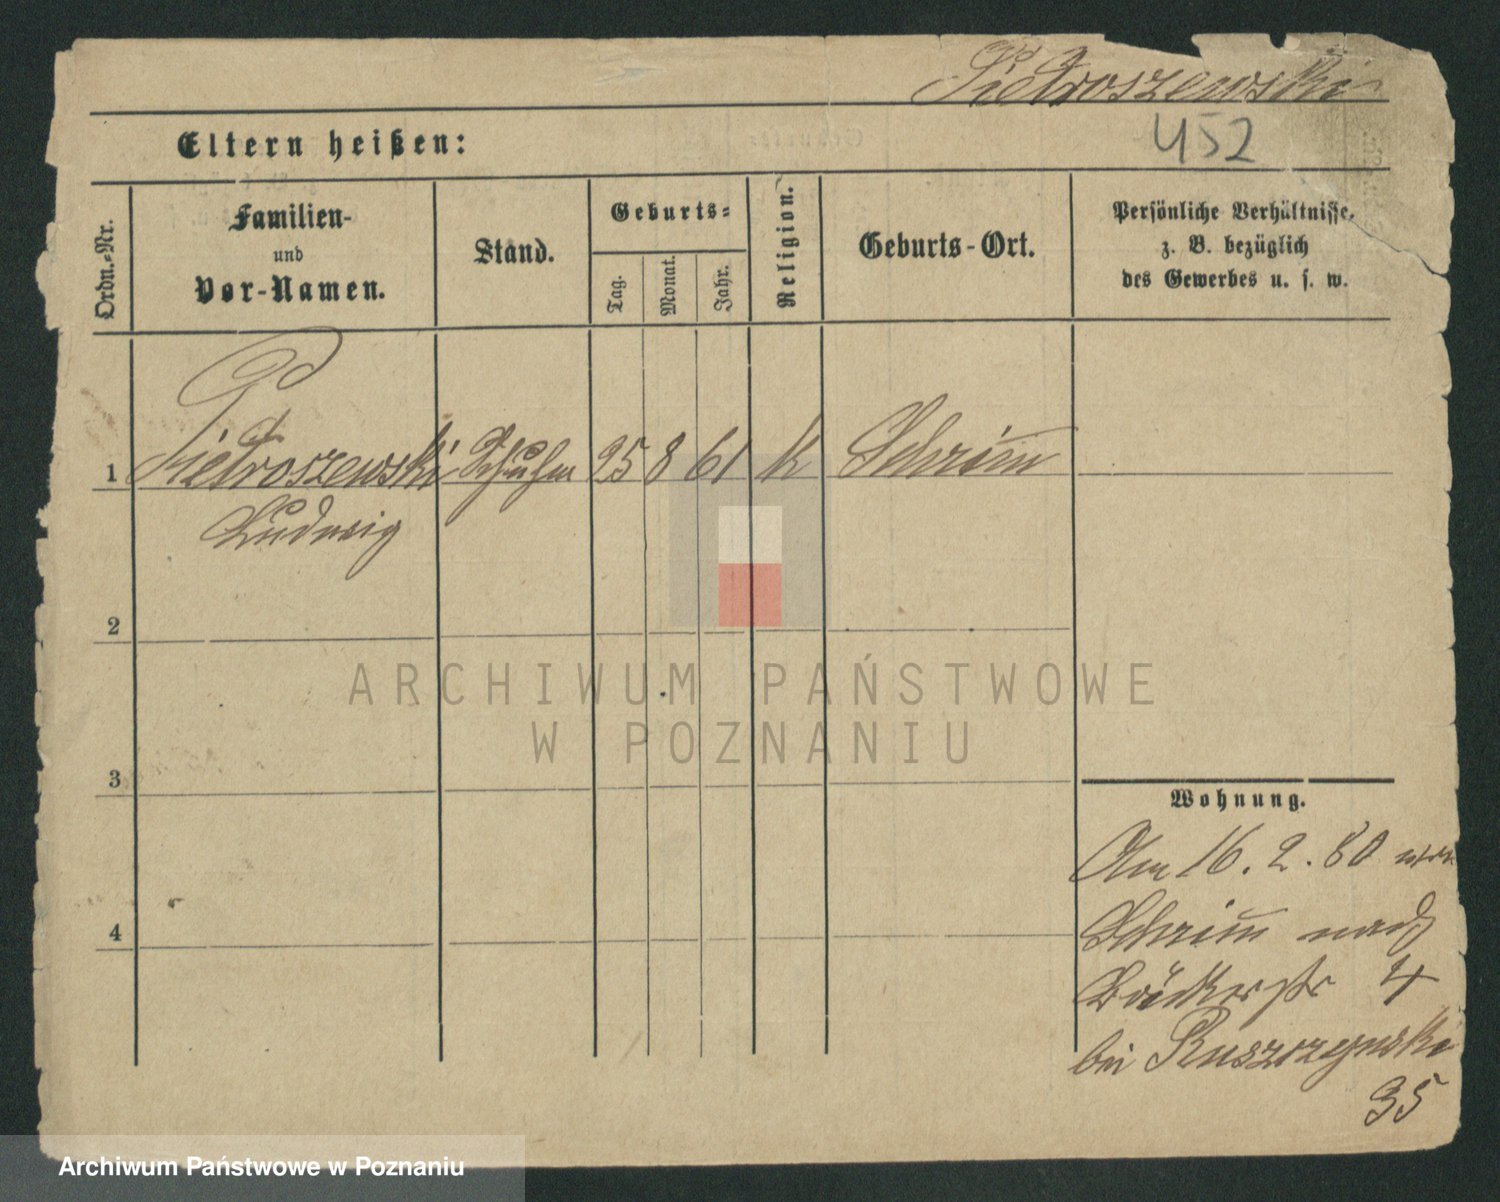 Pietroszewski
452
Eltern heißen:
Ordn.-Nr.
Familien-
und
Vor-Namen.
Stand.
Geburts-
Tag.
Monat.
Jahr.
Religion.
Geburts-Ort.
Persönliche Verhältnisse,
z. B. bezüglich
des Gewerbes u. s. w.
1 Pietroszewski Schuhm 25 8 61 k Schrim̄
Ludwig
2
3
4
Wohnung.
Am 16. 2. 80 von
Schrim̄ nach
Bäckerstr 4
bei Ruszczynski
35
ARCHIWUM PAŃSTWOWE
W POZNANIU
Archiwum Państwowe w Poznaniu